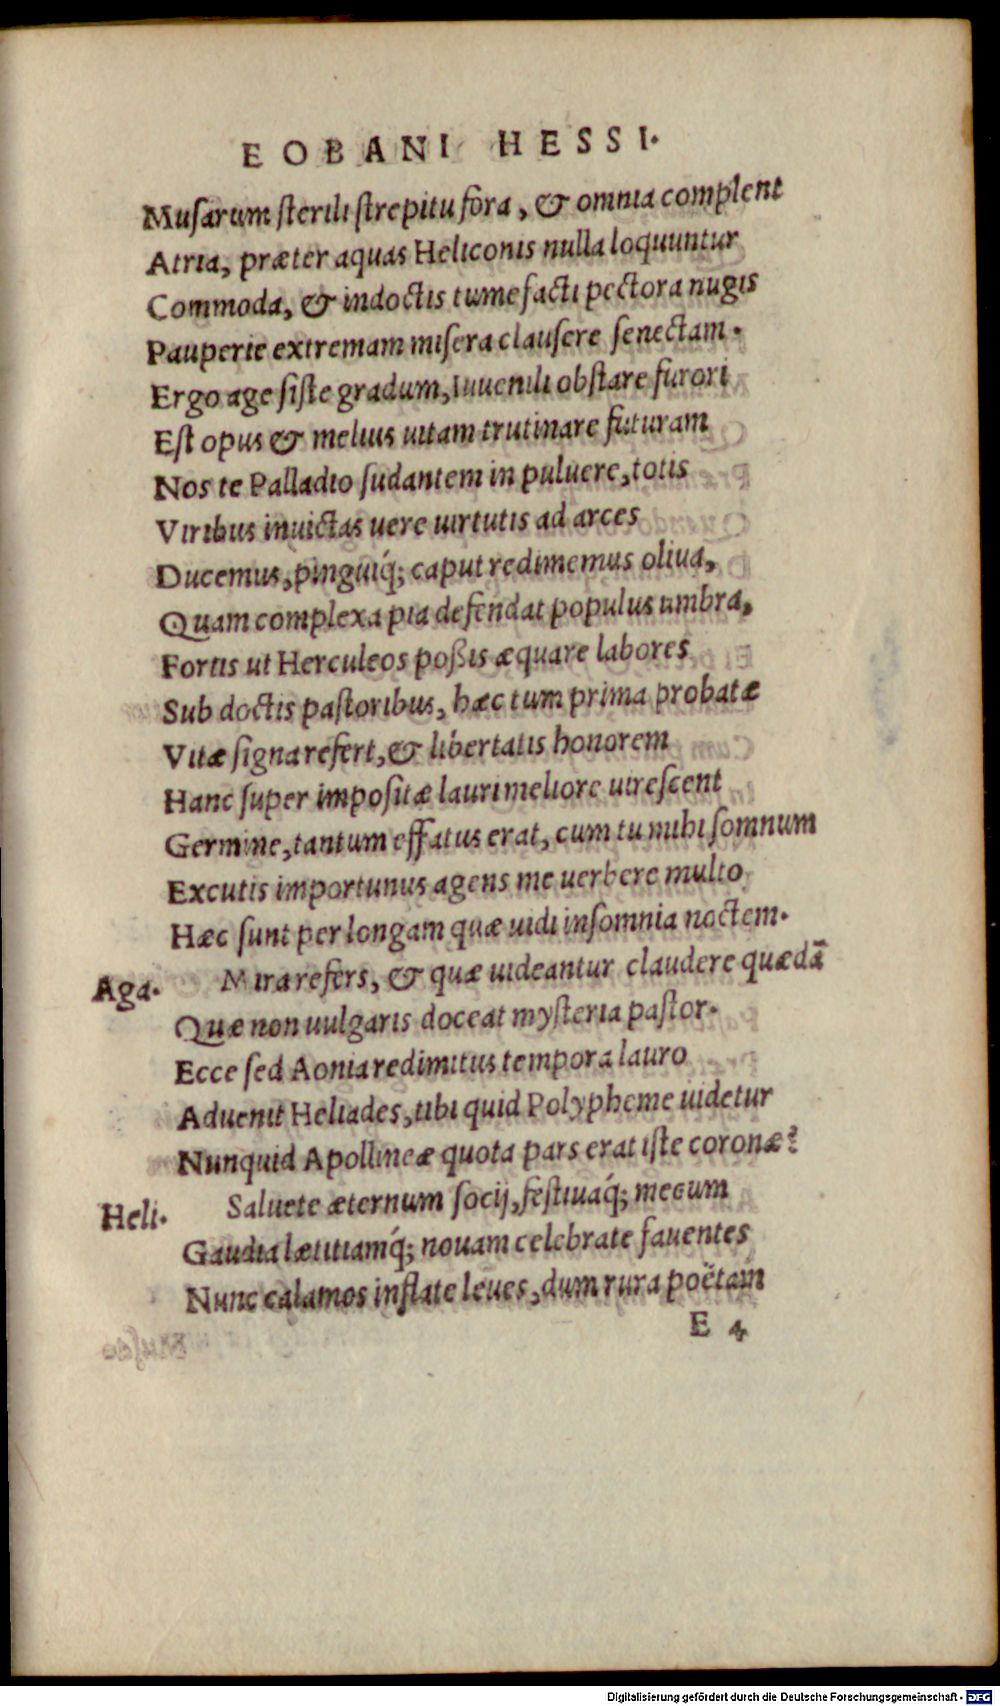 EOBANI HESSI.
Musarum sterili strepitu fora, & omnia complent
Atria, præter aquas Heliconis nulla loquuntur
Commoda, & indoctis tumefacti pectora nugis
Pauperie extremam misera clausere senectam.
Ergo age siste gradum, iuuenili obstare furori
Est opus & melius uitam trutinare futuram
Nos te Palladio sudantem in puluere, totis
Viribus inuictas uere uirtutis ad arces
Ducemus, pinguiq́; caput redimemus oliua,
Quam complexa pia defendat populus umbra,
Fortis ut Herculeos poßis æquare labores
Sub doctis pastoribus, hæc tum prima probatæ
Vitæ signa refert, & libertatis honorem
Hanc super impositæ lauri meliore uirescent
Germine, tantum effatus erat, cum tu mihi somnum
Excutis importunus agens me uerbere multo
Hæc sunt per longam quæ uidi insomnia noctem.
Aga. Mira refers, & quæ uideantur claudere quædā
Quæ non uulgaris doceat mysteria pastor.
Ecce sed Aonia redimitus tempora lauro
Aduenit Heliades, tibi quid Polypheme uidetur
Nunquid Apollineæ quota pars erat iste coronæ?
Heli. Saluete æternum socij, festiuaq́; mecum
Gaudia lætitiamq́; nouam celebrate fauentes
Nunc calamos inflate leues, dum rura poëtam
E 4
Digitalisierung gefördert durch die Deutsche Forschungsgemeinschaft - DFG